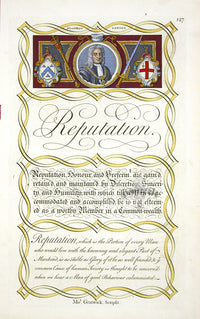 147
Reputation.
Reputation, Honour, and Preferm.t are gain'd
retain'd and maintain'd by Discretion, Sincerity
and Humility, with which till a Man be ac-
commodated and accomplish'd, he is not esteem-
ed as a worthy Member in a Common-wealth.
Reputation, which is the Portion of every Man
who would live with the knowing and elegant Part of
Mankind, is as stable as Glory if it be as well founded; & y.e
common Cause of human Society is thought to be concern'd
when we hear a Man of good Behaviour calumniated.
Gratwick. Script.